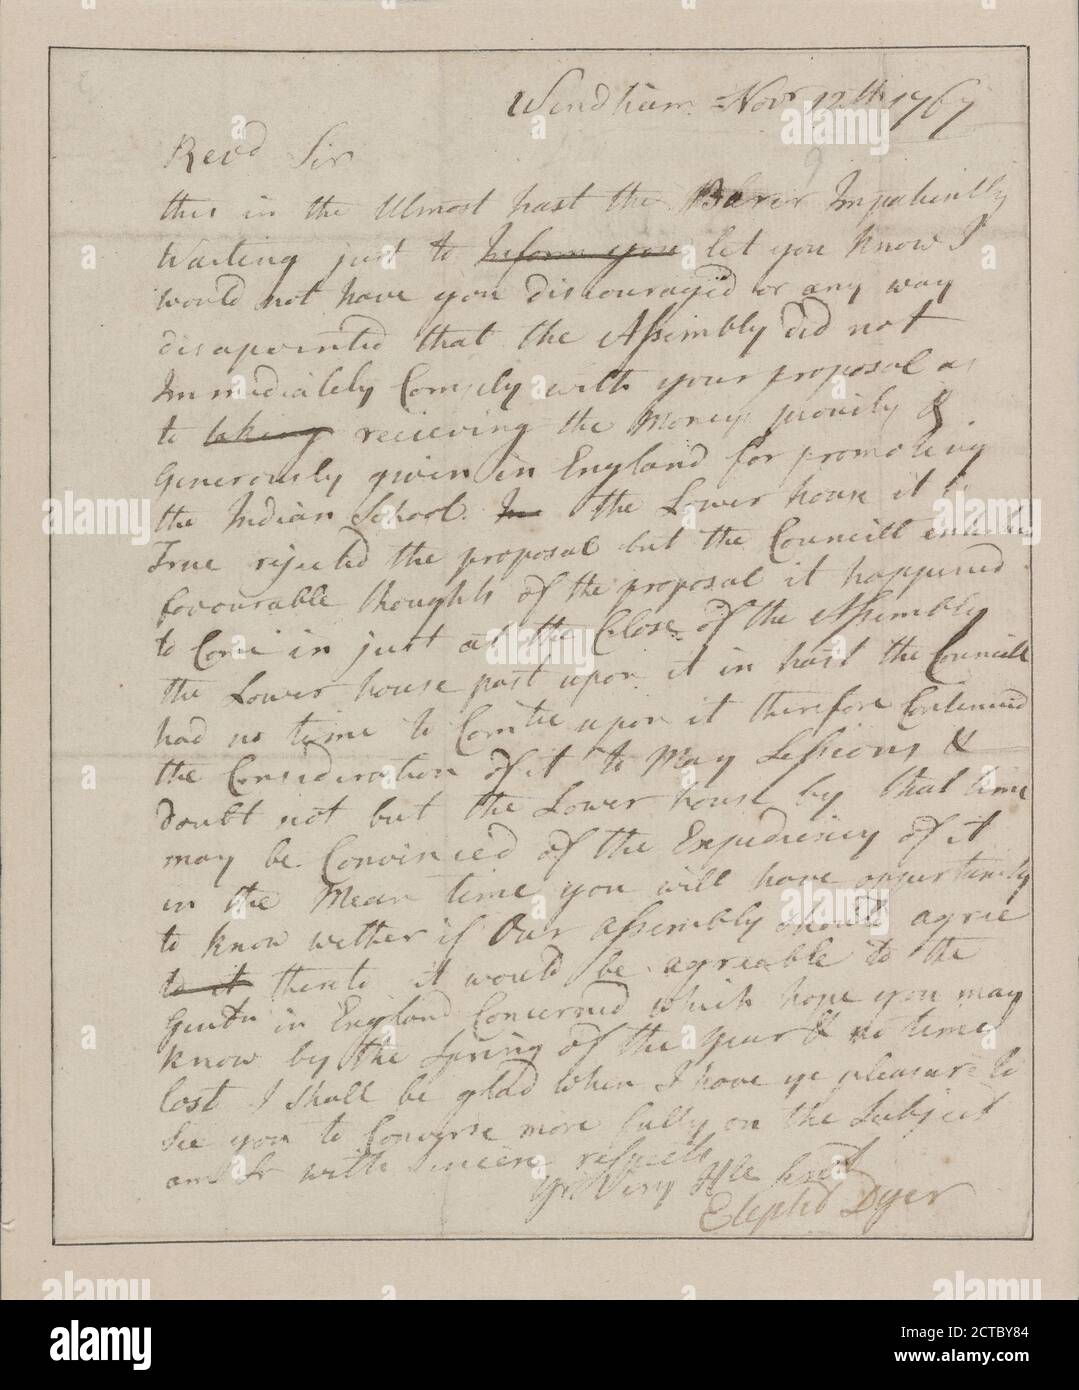 Windham Novr 12th 1767
Revd Sir
this in the Utmost hast the Barer Impatiently
Waiting just to Inform you let you know I
would not have you discouraged or any way
disapointed that the Assembly did not
Immediately Comply with your proposal as
to taking recieving the Money piously &
Generously given in England for promoting
the Indian School. In the Lower house it is
True rejected the proposal but the Councill
favourable thoughts of the proposal it happened
to Come in just at the Close of the Assembly
the Lower house past upon it in hast the Councill
had no time to Comtte upon it therefore Continued
the Consideration of it to May Sessions &
doubt not but the Lower house by that time
may be Convinced of the Expediency of it
in the Mean time you will have opportunity
to know wether if Our Assembly should agree
to it thereto it would be agreable to the
Gentn in England Concerned which hope you may
know by the Spring of the year & no time
lost I shall be glad when I have ye pleasure to
See you to Converse more fully on the Subject
am Sr with Sincere respects
Yr Very Hle Servt
Elipht Dyer
alamy
a
alamy
Image ID: 2CTBY84
www.alamy.com